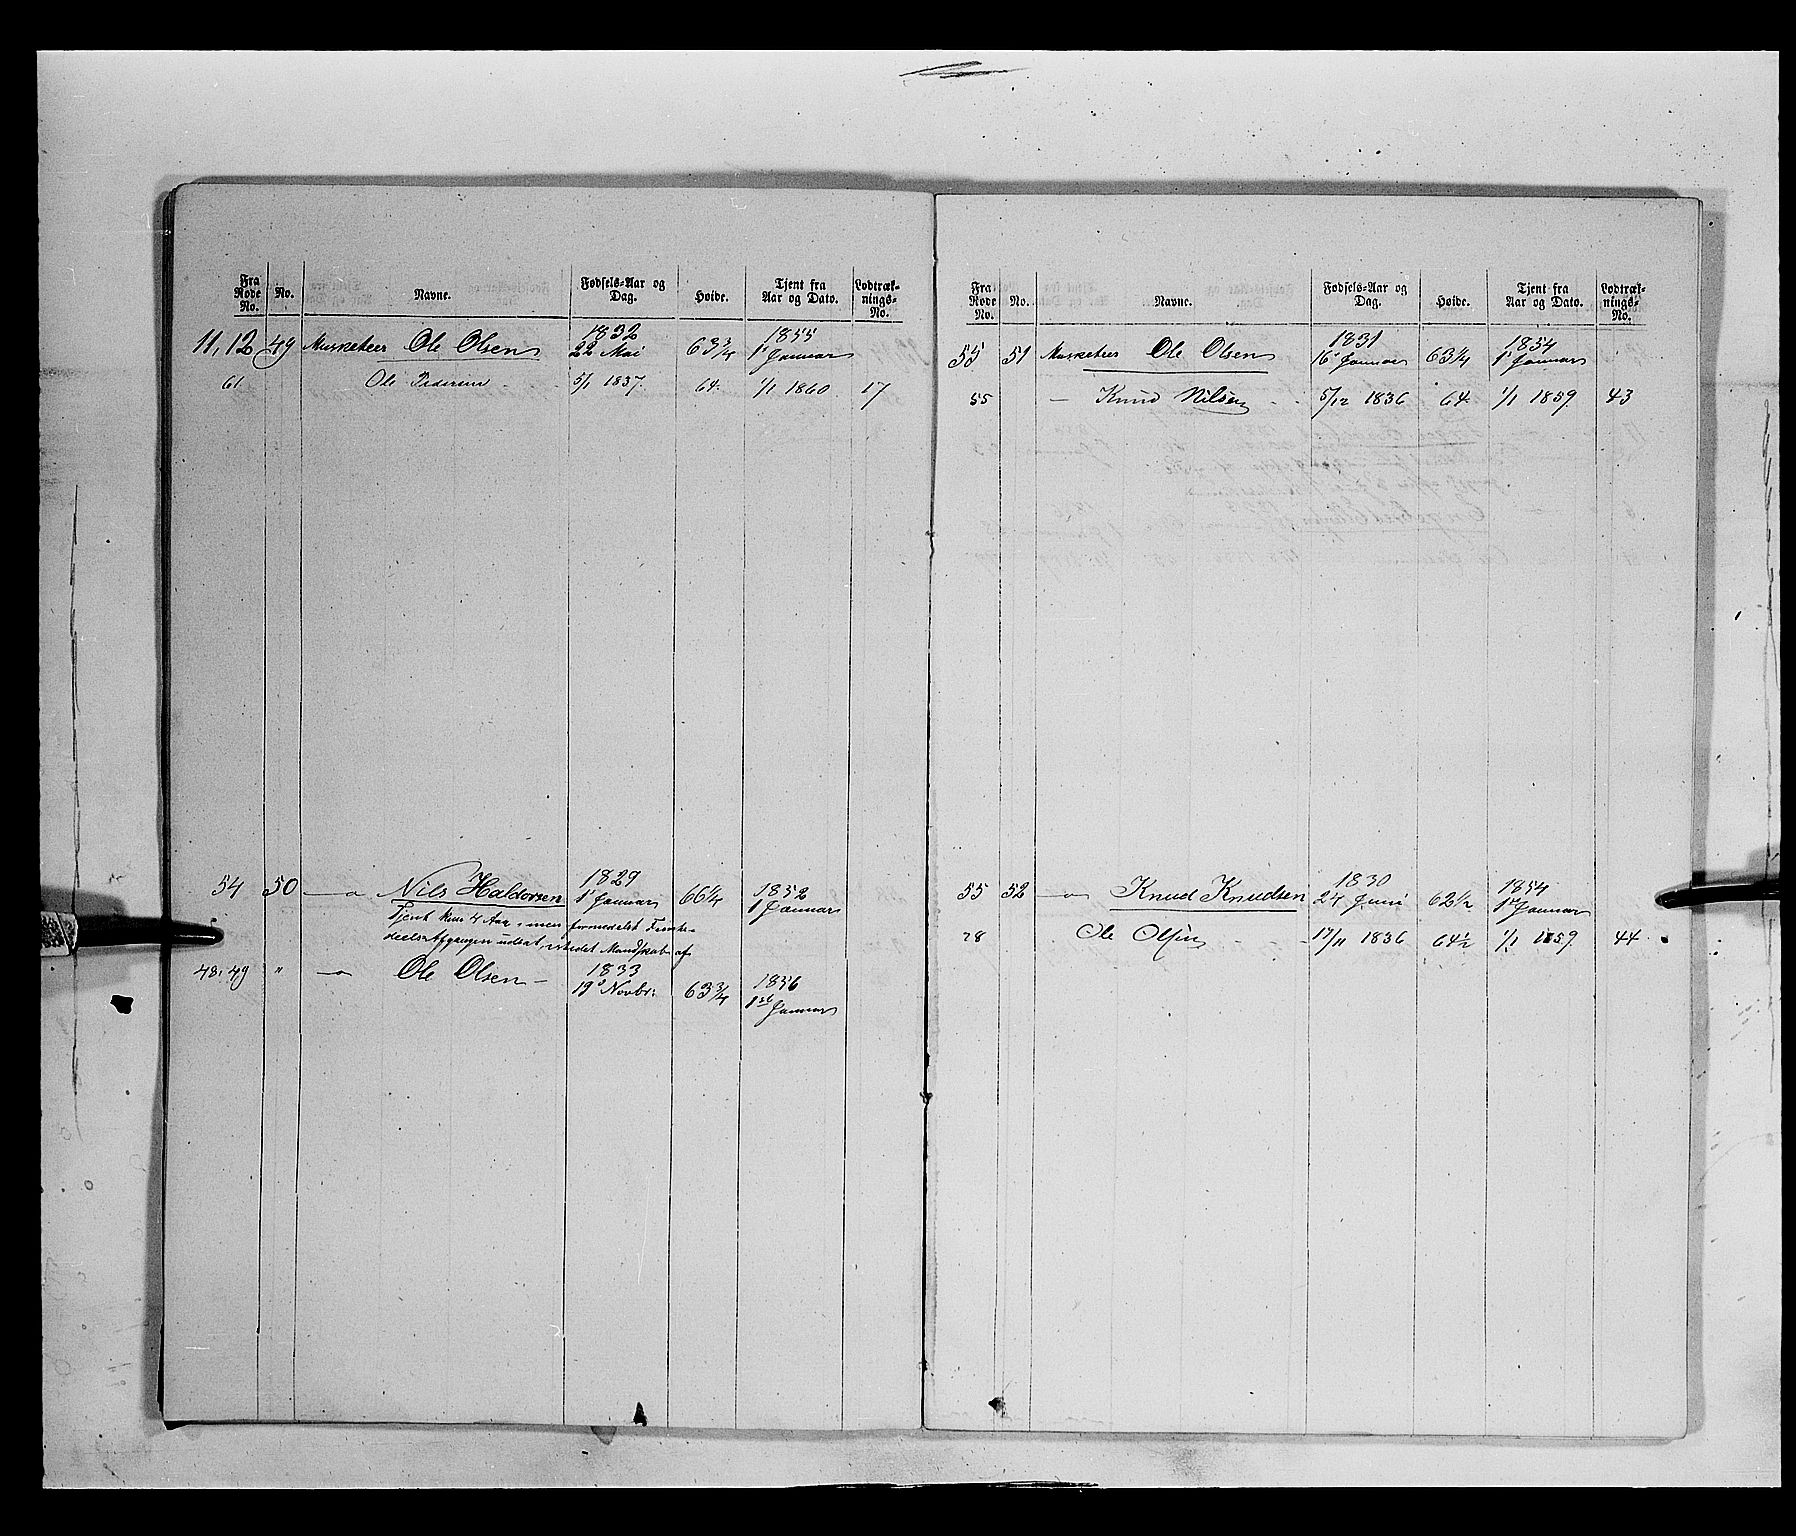 Fra Rode No. | No. | Navne. | Fødsels-Aar og Dag. | Høide. | Tjent fra Aar og Dato. | Lodtræk-nings-No.
11, 12 | 49 | Musketeer Ole Olsen | 1832 22 Mai | 63 3/4 | 1855 1 Januar
61 | Ole Pedersen | 5/1 1837. | 64. | 1/1 1860. | 17
54 | 50 | —"— Nils Haldorsen | 1829 1 Januar | 66 1/4 | 1852 1 Januar
Tjent kun 4 Aar, men formedelst
deels Afgangen udsat, Mandskab af
48, 49 | " | —"— Ole Olsen — | 1833 19 Novbr: | 63 3/4 | 1856 1ste Januar
Fra Rode No. | No. | Navne. | Fødsels-Aar og Dag. | Høide. | Tjent fra Aar og Dato. | Lodtræk-nings-No.
55 | 51 | Musketeer Ole Olsen | 1831 16 Januar | 63 1/4 | 1854 1 Januar
55 | — Knud Nilsen | 5/12 1836 | 64. | 1/1 1859. | 43
55 | 52 | —"— Knud Knudsen | 1830 24 Juni | 62 1/2 | 1854 1ste Januar
28 | Ole Olsen | 17/11 1836 | 64 1/2 | 1/1 1859. | 44